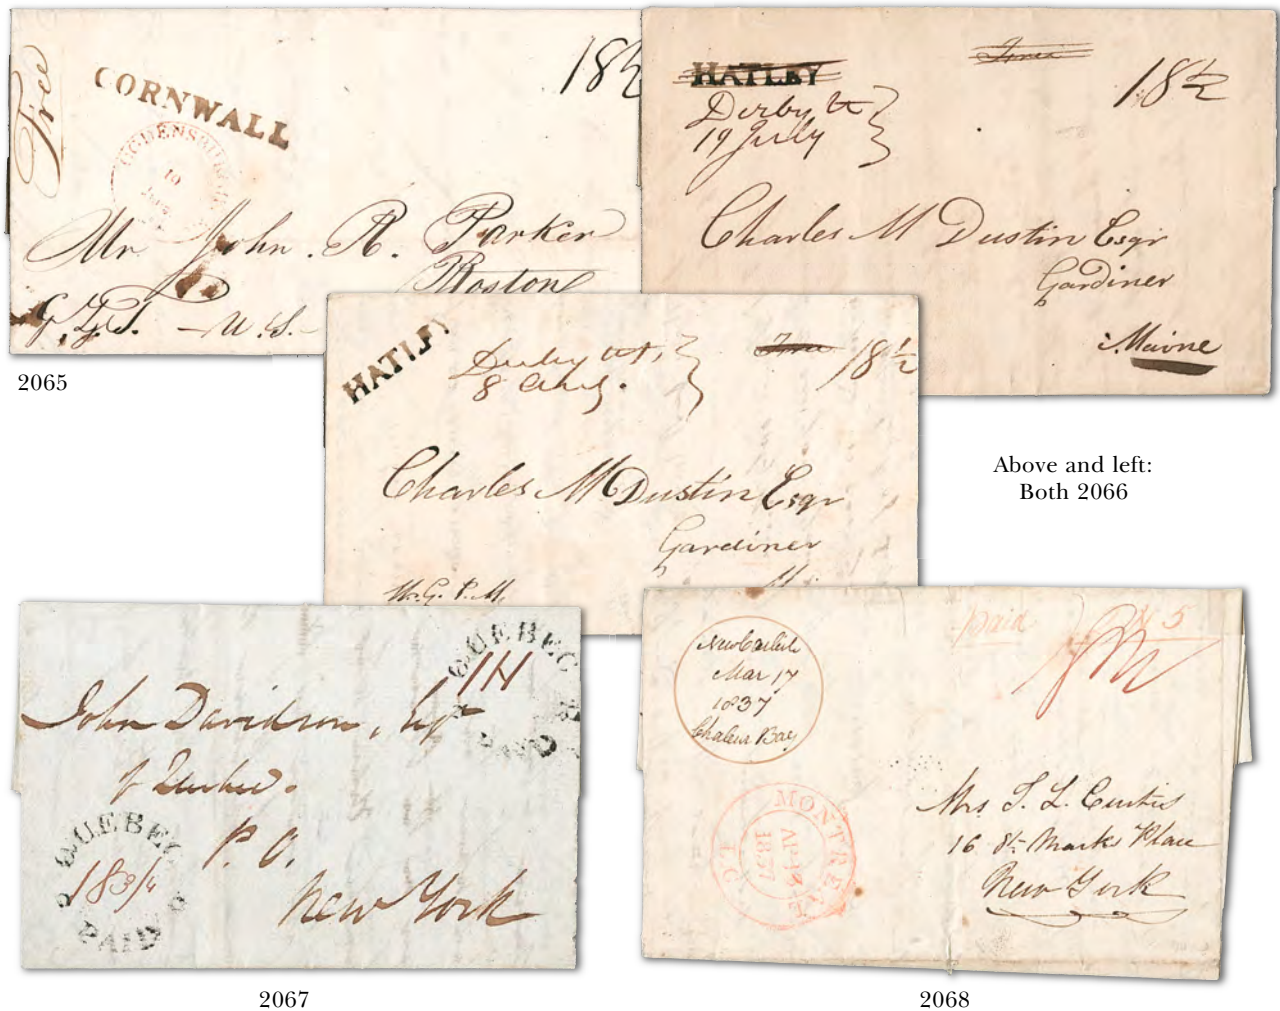 Free
CORNWALL
18½
OGDENSBURGH
10
Mr John . A. Parker
Boston
U.S.
2065
HATLEY
Derby Vt
19 July
18½
Charles M Dustin Esqr
Gardiner
Maine
HATLEY
Derby Vt.
8 Aug.
18½
Charles M Dustin Esqr
Gardiner
Above and left:
Both 2066
QUEBEC
1N
PAID
John Davidson, Esqr
of Quebec.
P. O.
New York
QUEBEC
18 3/4
PAID
2067
New Carlisle
Mar 17
1837
Chaleur Bay
paid
MONTREAL
AP 13
1837
L.C
Mrs T. L. Curtis
16 St Marks Place
New York
2068